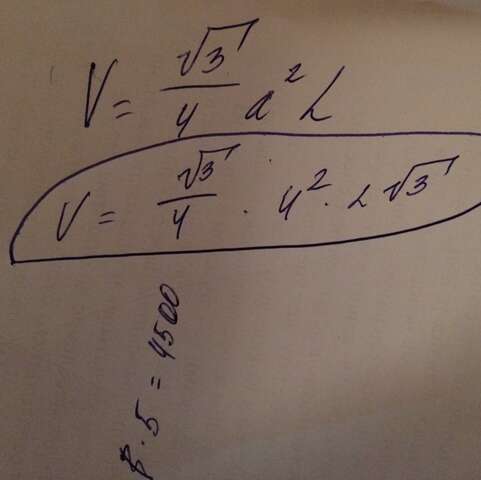 V = √3/4 a² h
V = √3/4 · 4² · 2√3
· 5 = 4500